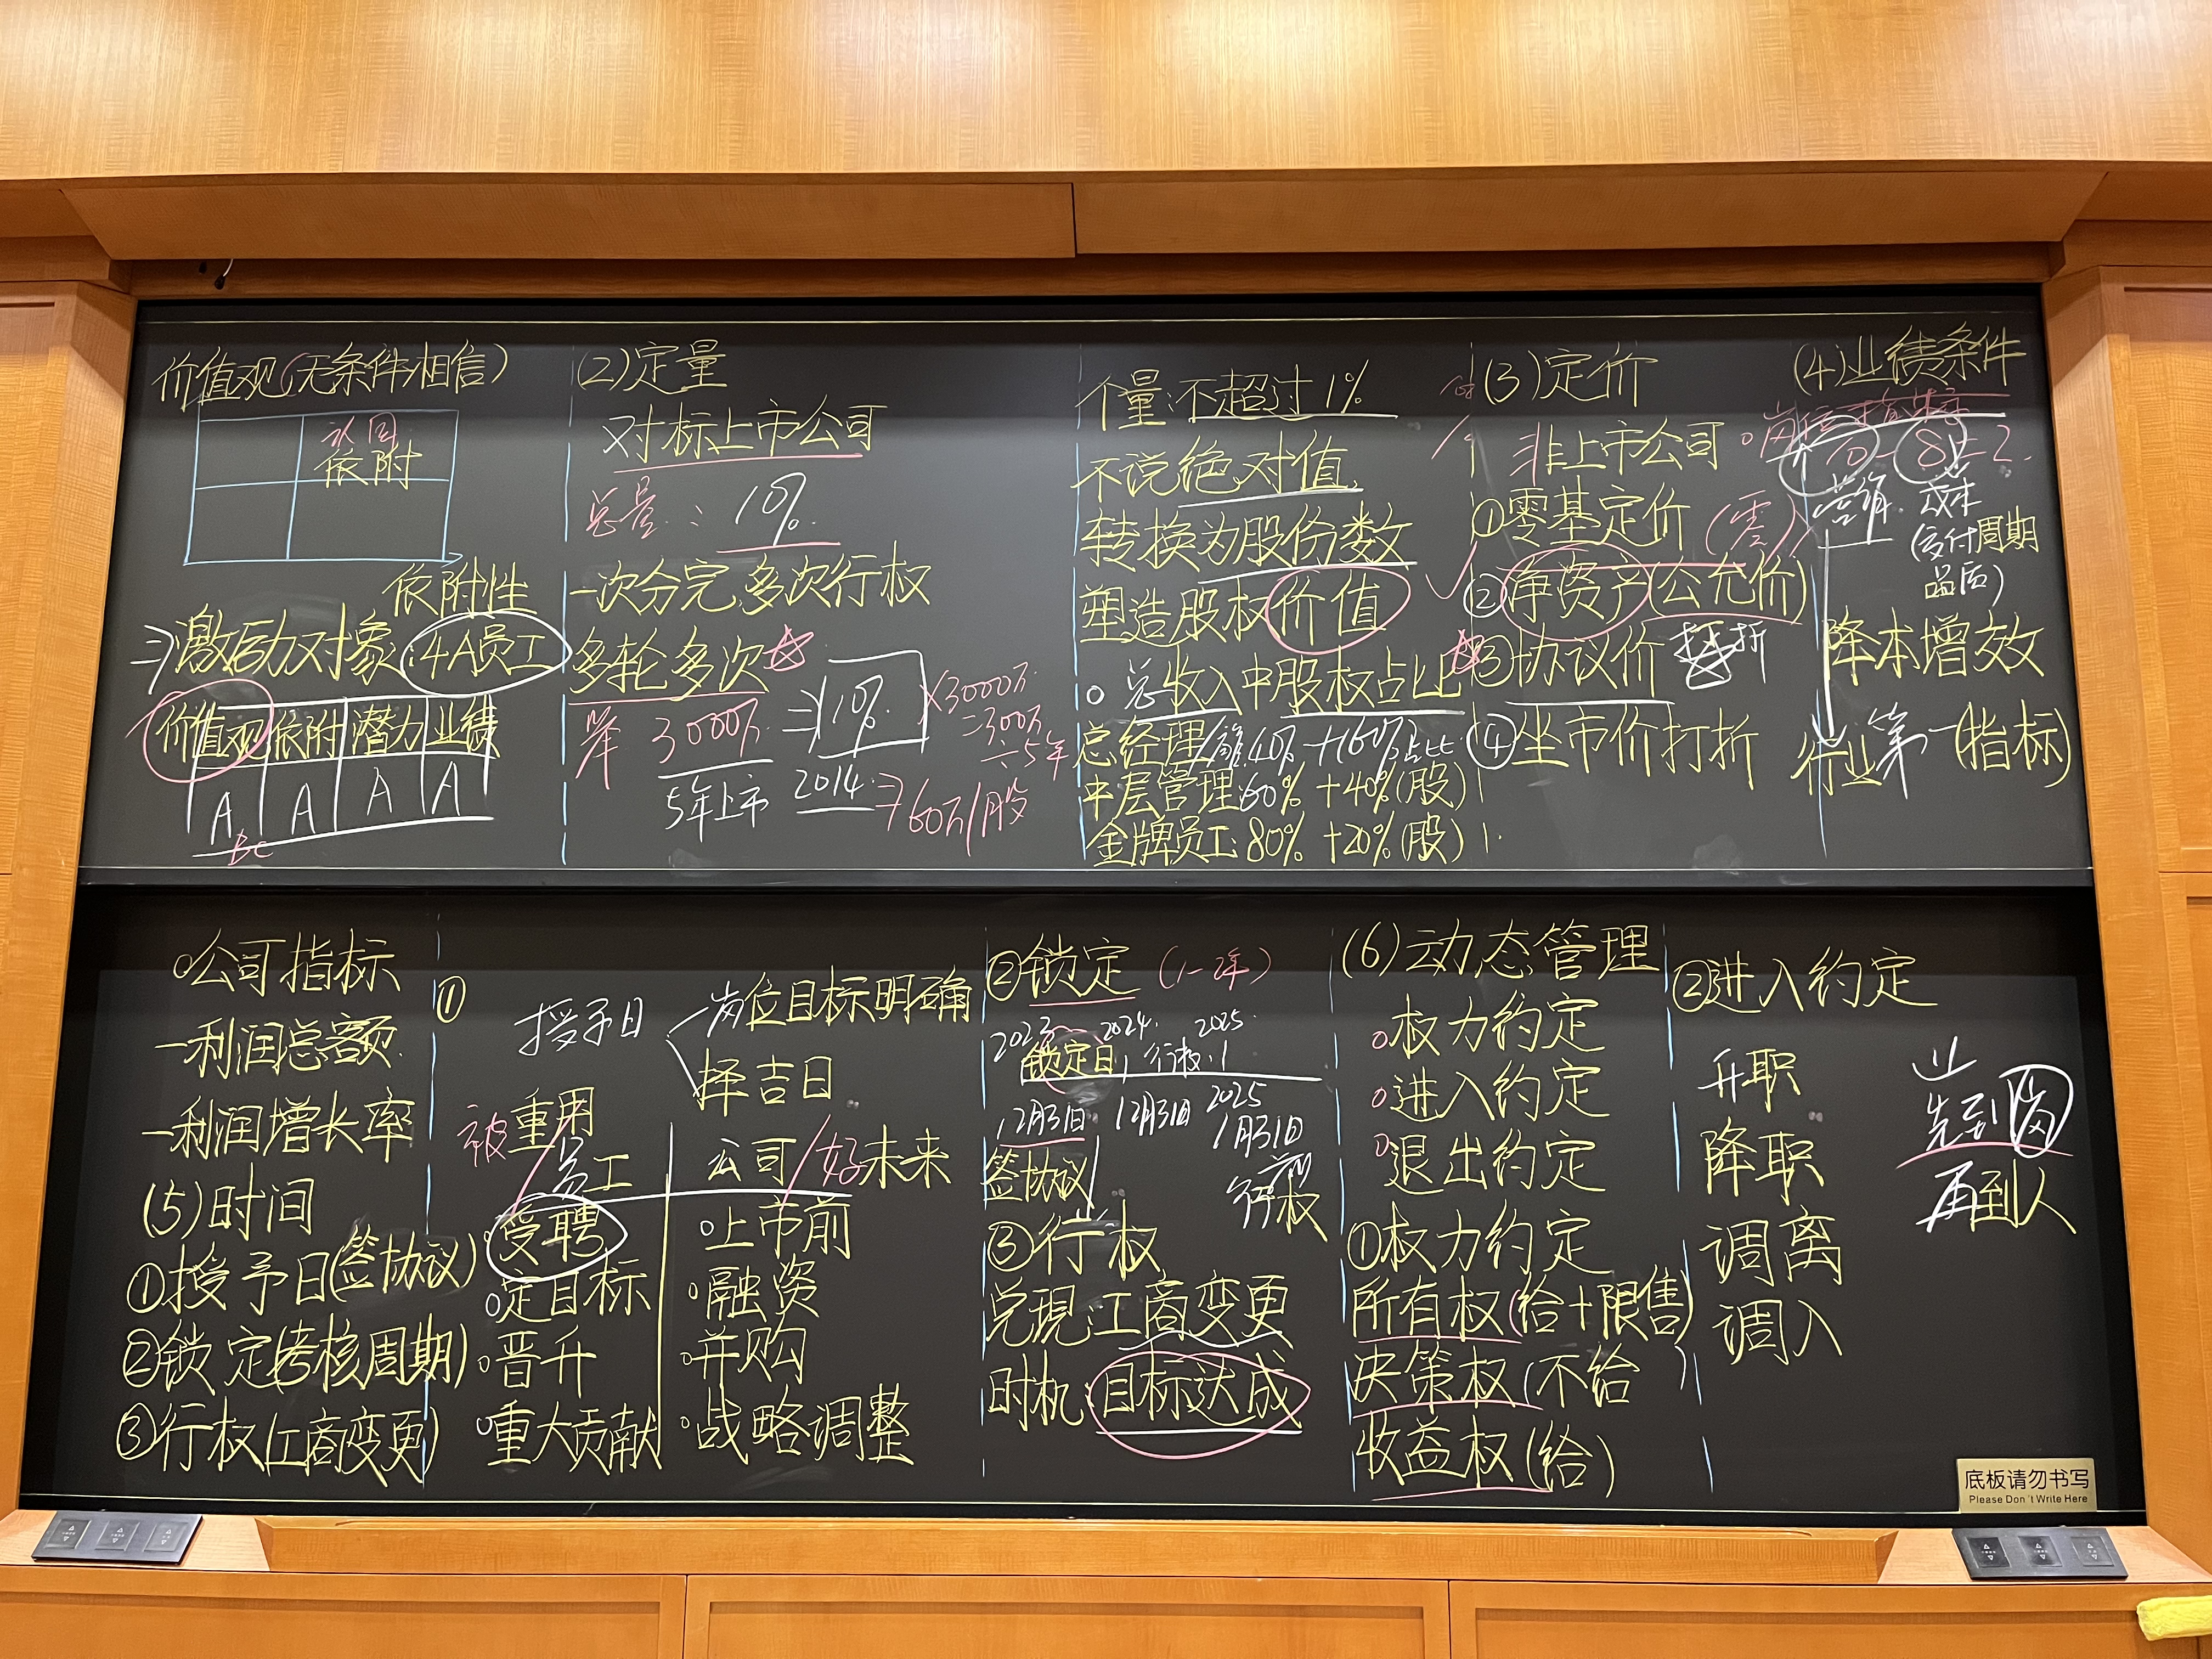 价值观(无条件相信)
认同
依附
依附性
⇒激励对象:4A员工
价值观 依附 潜力 业绩
A A A A
BC
(2)定量
对标上市公司
总量:10%
一次分完,多次行权
多轮多次
3000万⇒10%×3000万
=300万
÷5年
5年上市 2014⇒60万/股
个量:不超过1%
不说绝对值
转换为股份数
塑造股权价值
总收入中股权占比
总经理 40%+60%占比
中层管理:60%+40%(股)
金牌员工:80%+20%(股)
(3)定价
非上市公司
①零基定价(零)
②净资产(公允价)
③协议价 折
④坐市价打折
(4)业绩条件
岗位指标
10-8=2
成本
(交付周期
品质)
降本增效
行业第一(指标)
公司指标
一利润总额
一利润增长率
(5)时间
①授予日(签协议)
②锁定(考核周期)
③行权(工商变更)
①
授予日
岗位目标明确
择吉日
被重用
员工
受聘
定目标
晋升
重大贡献
公司/好未来
上市前
融资
并购
战略调整
②锁定(1-2年)
2023 2024 2025
锁定日 行权
12月31日 12月31日 2025
1月31日
签协议
行权
③行权
兑现:工商变更
时机:目标达成
(6)动态管理
权力约定
进入约定
退出约定
①权力约定
所有权(给+限售)
决策权(不给)
收益权(给)
②进入约定
升职
降职
调离
调入
先到岗
再到人
底板请勿书写
Please Don't Write Here